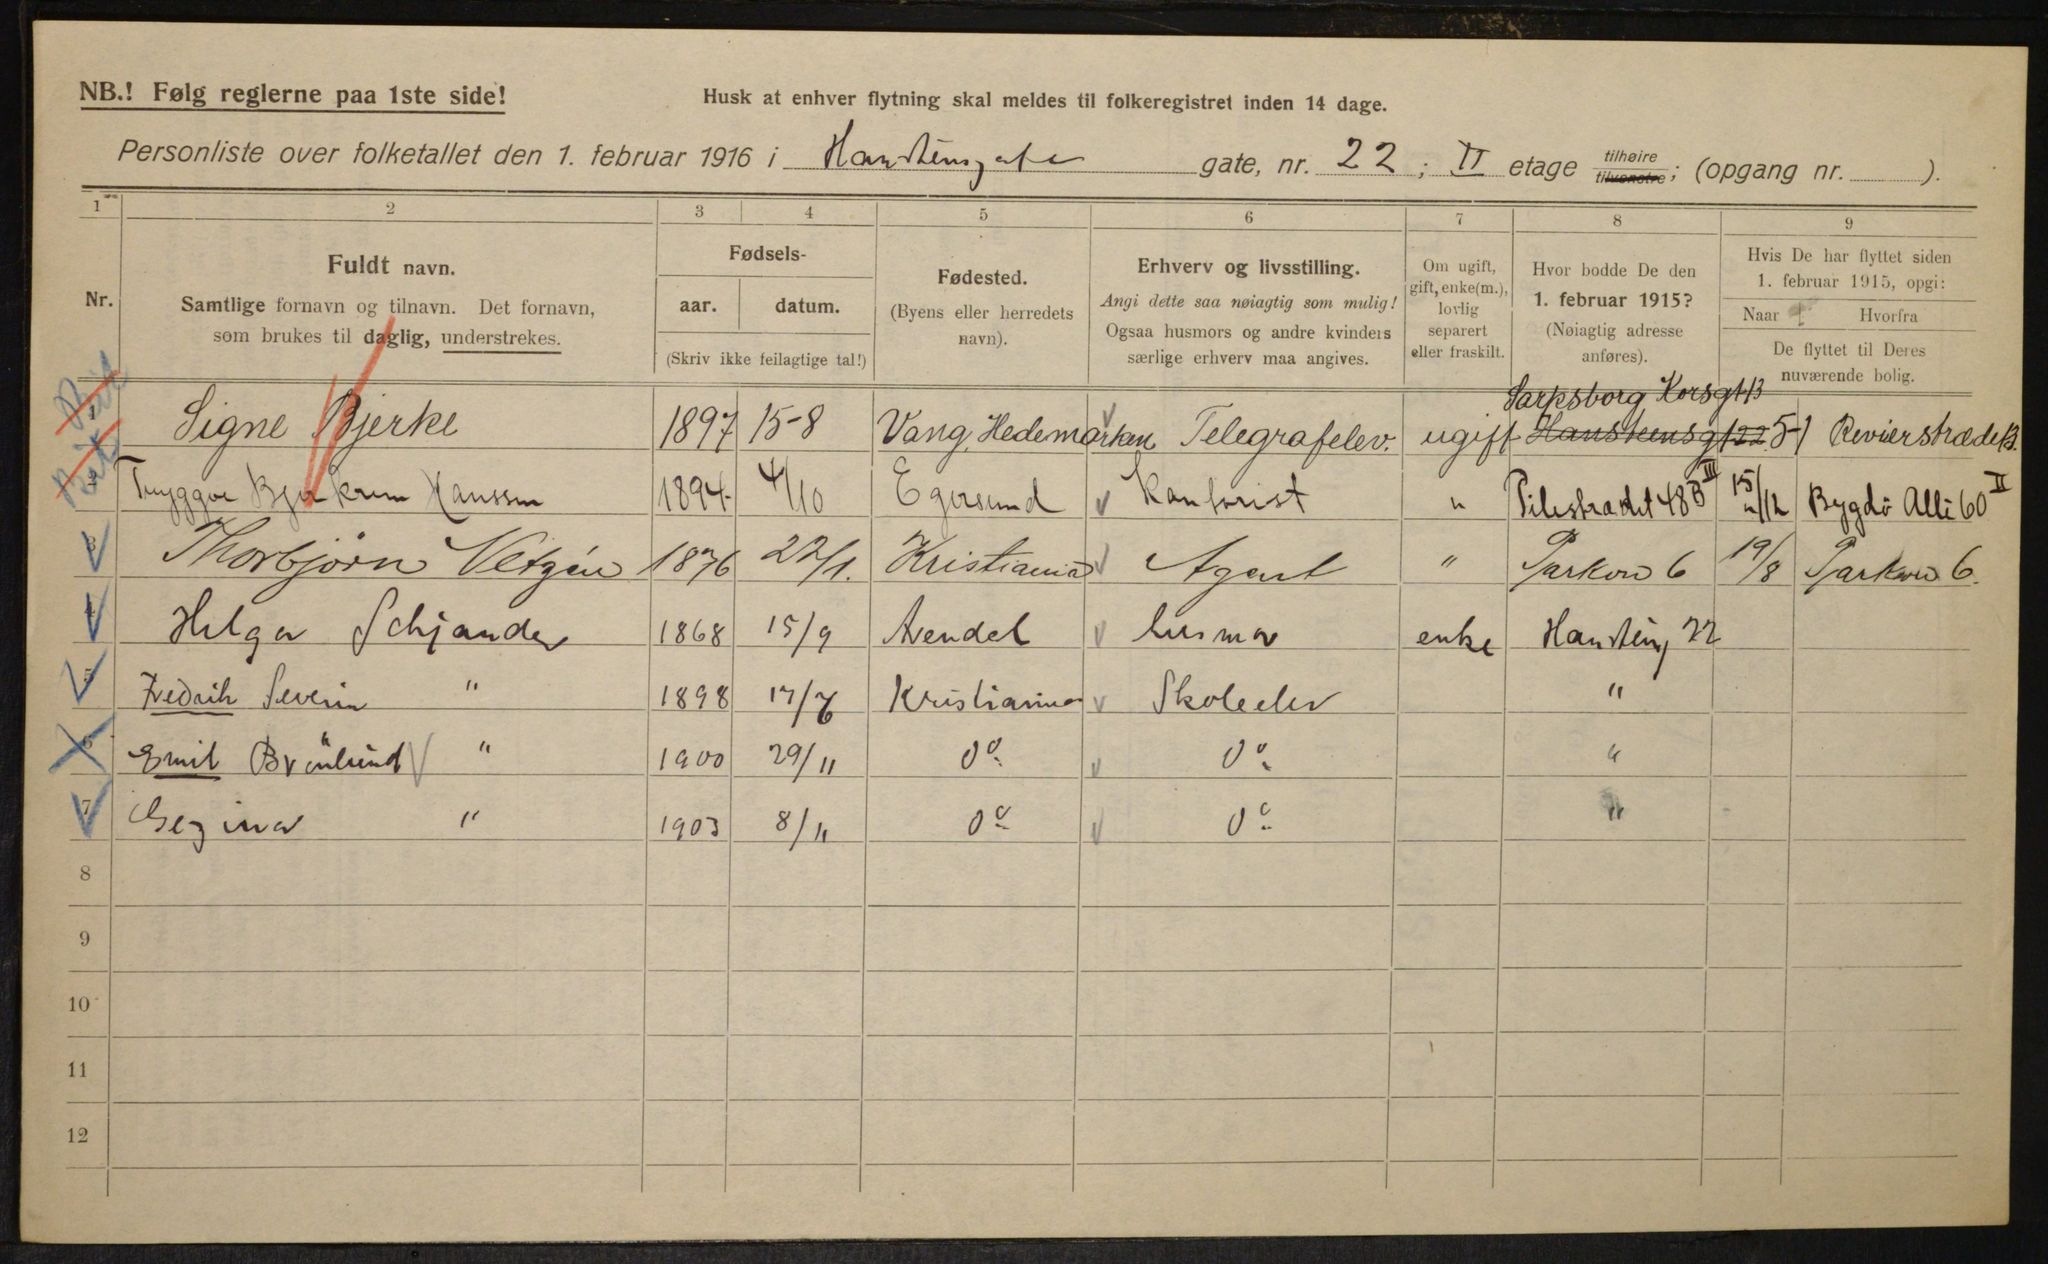 NB.! Følg reglerne paa 1ste side!
Husk at enhver flytning skal meldes til folkeregistret inden 14 dage.
Personliste over folketallet den 1. februar 1916 i Hansteensgate gate, nr. 22 ; II etage tilhøire tilvenstre; (opgang nr. ).
1 2 3 4 5 6 7 8 9
Nr.
Fuldt navn.
Samtlige fornavn og tilnavn. Det fornavn,
som brukes til daglig, understrekes.
Fødsels-
aar. datum.
(Skriv ikke feilagtige tal!)
Fødested.
(Byens eller herredets
navn).
Erhverv og livsstilling.
Angi dette saa nøiagtig som mulig!
Ogsaa husmors og andre kvinders
særlige erhverv maa angives.
Om ugift,
gift, enke(m.),
lovlig
separert
eller fraskilt.
Hvor bodde De den
1. februar 1915?
(Nøiagtig adresse
anføres).
Hvis De har flyttet siden
1. februar 1915, opgi:
Naar Hvorfra
De flyttet til Deres
nuværende bolig.
Sarpsborg Korsgt 13
1 Signe Bjerke 1897 15-8 Vang, Hedemarken Telegrafelev. ugift Hansteensgt 22 5-1 Revierstræde 13.
2 Tryggve Bjerkrem Hanssen 1894 4/10 Egersund Kontorist " Pilestrædet 48B III 15/12 Bygdö Allé 60 II
3 Thorbjørn Vetzén 1876 22/1. Kristiania Agent " Parkvn 6 19/8 Parkvn 6.
4 Helga Schjander 1868 15/9 Arendal husmor enke Hansteensg 22
5 Fredrik Severin " 1898 17/7 Kristiania Skoleelev "
6 Emil Brünlund " 1900 29/11 do do "
7 Gezina " 1903 8/11 do do "
8
9
10
11
12